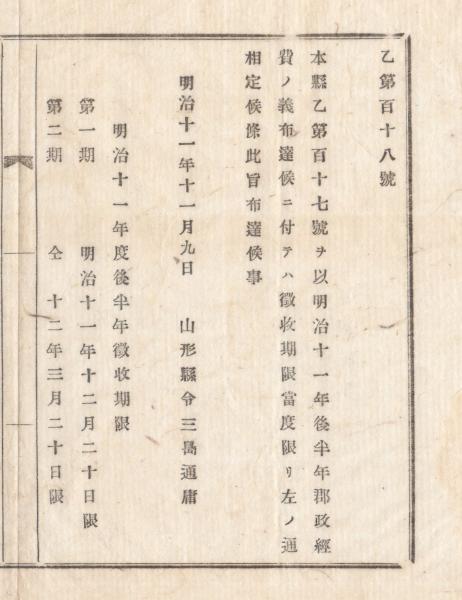 乙第百十八號
本縣乙第百十七號ヲ以明治十一年後半年郡政經
費ノ義布達候ニ付テハ徴收期限當度限リ左ノ通
相定候條此旨布達候事
明治十一年十一月九日 山形縣令三島通庸
明治十一年度後半年徴收期限
第一期 明治十一年十二月二十日限
第二期 仝 十二年三月二十日限